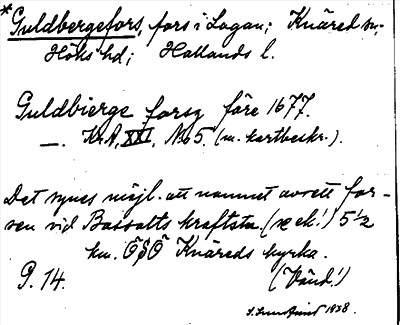 *Guldbergefors, fors i Lagan; Knäred sn;
Höks hd; Hallands l.
Guldbierge forsz före 1677.
—. KrA, XXI, No 5. (m. kartbeskr.).
Det synes möjl. att namnet avsett for-
sen vid Bassalts kraftstn (se ek.!) 5½
km. ÖSÖ Knäreds kyrka.
P. 14. (Vänd!)
1938.